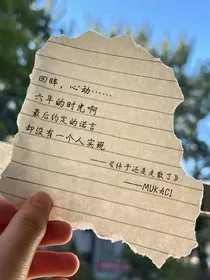 回眸，心动……
六年的时光啊
最后约定的诺言
却没有一个人实现
——《终于还是走散了》
——MUKACI